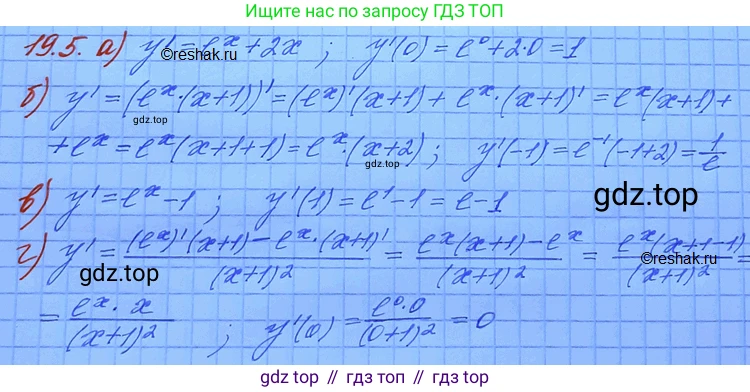 Ищите нас по запросу ГДЗ ТОП
19.5. а) y' = e^x + 2x ; y'(0) = e^0 + 2·0 = 1
©reshak.ru
б) y' = (e^x·(x+1))' = (e^x)'(x+1) + e^x·(x+1)' = e^x(x+1) +
gdz.top
+ e^x = e^x(x+1+1) = e^x·(x+2) ; y'(-1) = e^{-1}(-1+2) = 1/e
gdz.top
в) y' = e^x - 1 ; y'(1) = e^1 - 1 = e - 1
gdz.top
г) y' = ((e^x)'(x+1) - e^x·(x+1)')/(x+1)^2 = (e^x(x+1) - e^x)/(x+1)^2 = (e^x(x+1-1))/(x+1)^2 =
gdz.top
©reshak.ru
= (e^x·x)/(x+1)^2 ; y'(0) = (e^0·0)/(0+1)^2 = 0
gdz.top // гдз.топ // gdz.top